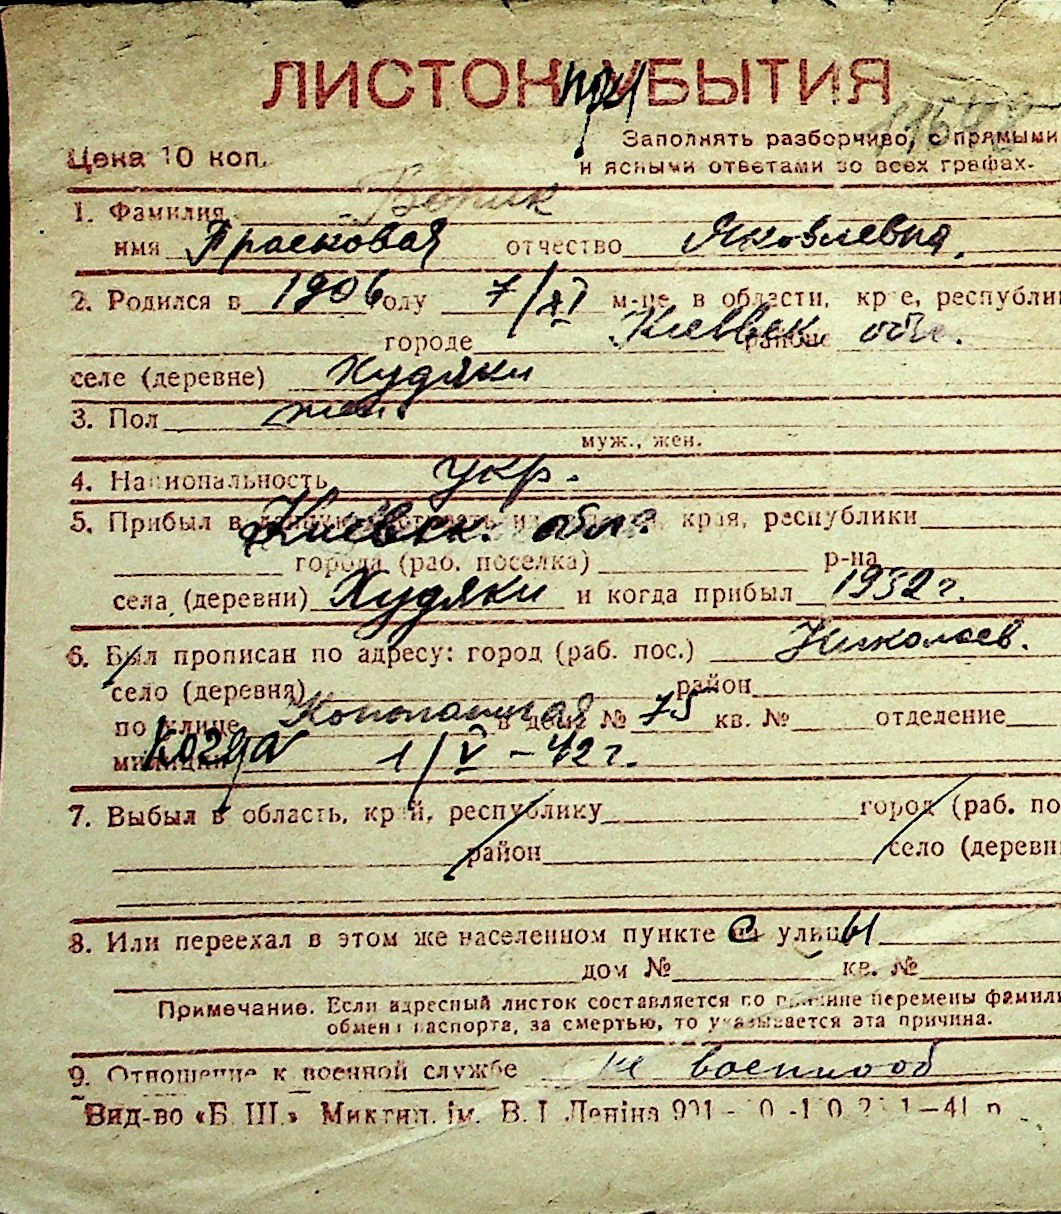 ЛИСТОК УБЫТИЯ
при
Цена 10 коп.
Заполнять разборчиво, с прямыми
и ясными ответами во всех графах.
1. Фамилия
имя Прасковая отчество Яковлевна
2. Родился в 1906 году 7/XI м-це, в области, крае, республи
городе Киевск районе обл.
селе (деревне) Худяки
3. Пол жен.
муж., жен.
4. Национальность укр.
5. Прибыл в Киевск. обл. края, республики
города (раб. поселка) р-на
села (деревни) Худяки и когда прибыл 1932 г.
6. Был прописан по адресу: город (раб. пос.) Николаев.
село (деревня) район
по улице в доме № 75 кв. № отделение
милиции когда 1/V – 42 г.
7. Выбыл в область, край, республику город (раб. по
район село (деревн
8. Или переехал в этом же населенном пункте с на улицы
дом № кв. №
Примечание. Если адресный листок составляется по причине перемены фамили
обмена паспорта, за смертью, то указывается эта причина.
9. Отношение к военной службе не военнооб
Вид-во «Б. Ш.» Микт ил. ім. В. І Леніна